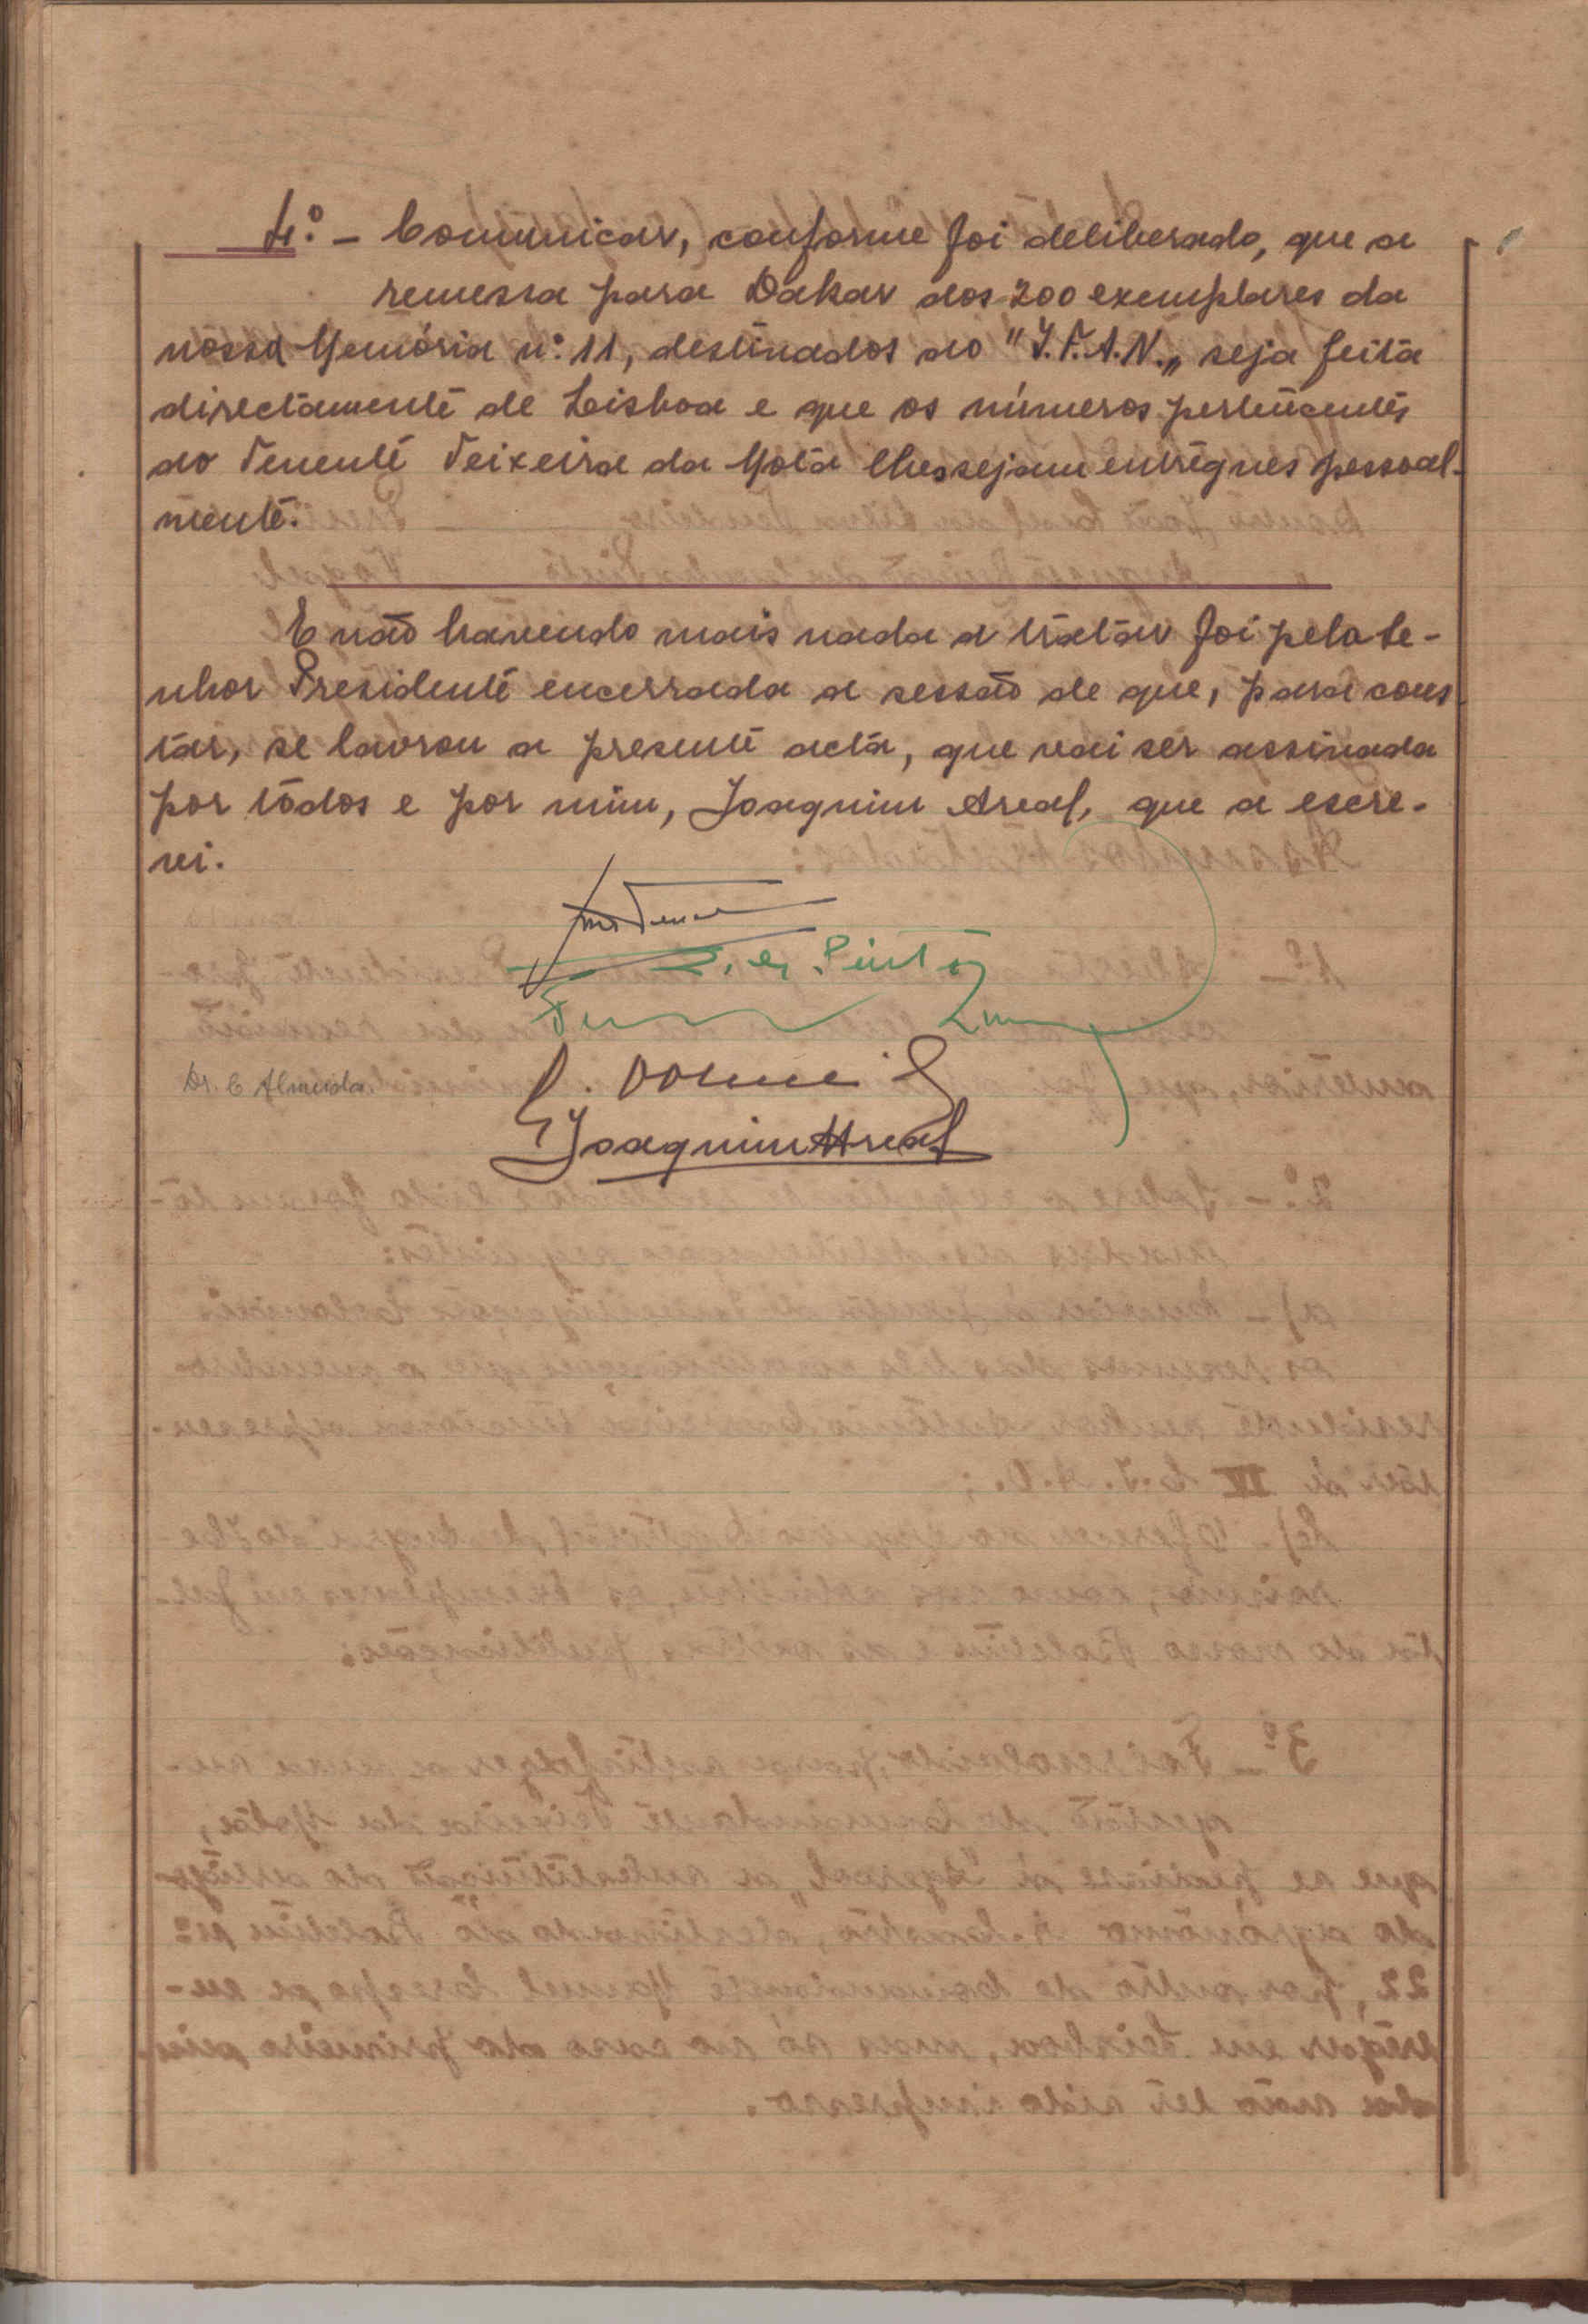 4.º - Comunicar, conforme foi deliberado, que a
remessa para Dakar dos 200 exemplares da
nossa Memória n.º 11, destinados ao "I.F.A.N.„ seja feita
directamente de Lisboa e que os números pertencentes
ao Tenente Teixeira da Mota lhes sejam entregues pessoal-
mente.
E não havendo mais nada a tratar foi pelo Se-
nhor Presidente encerrada a sessão de que, para cons-
tar, se lavrou a presente acta, que vai ser assinada
por todos e por mim, Joaquim Areal, que a escre-
vi.
Pinto
Dr. C Almeida
Joaquim Areal